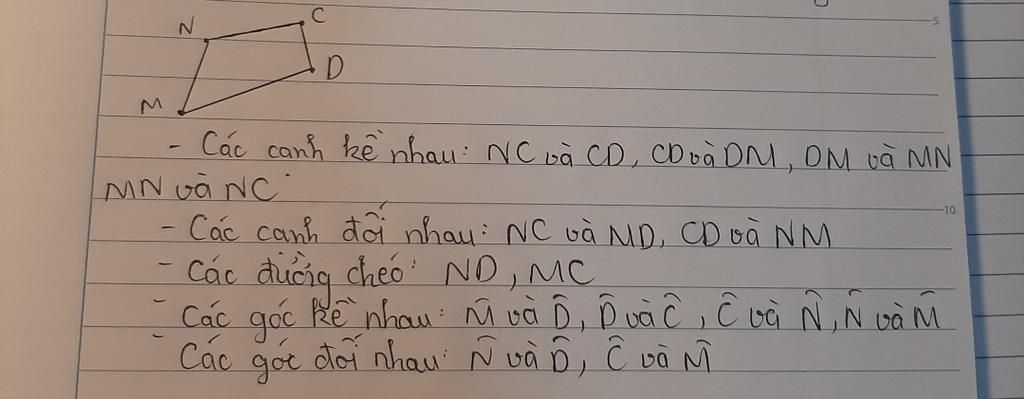 N C
D
M
5
- Các canh kề nhau: NC và CD, CD và DM, DM và MN
MN và NC.
10
- Các canh đối nhau: NC và MD, CD và NM
- Các đường chéo: ND, MC
- Các góc kề nhau: M̂ và D̂, D̂ và Ĉ, Ĉ và N̂, N̂ và M̂
- Các góc đối nhau: N̂ và D̂, Ĉ và M̂